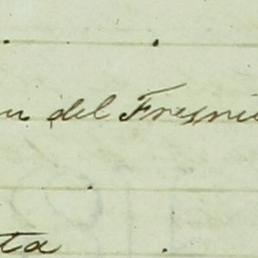 del Fresni
ta